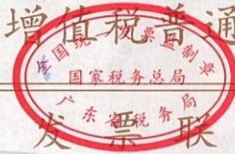 增值税普通
全国统一发票监制章
国家税务总局
广东省税务局
发票联